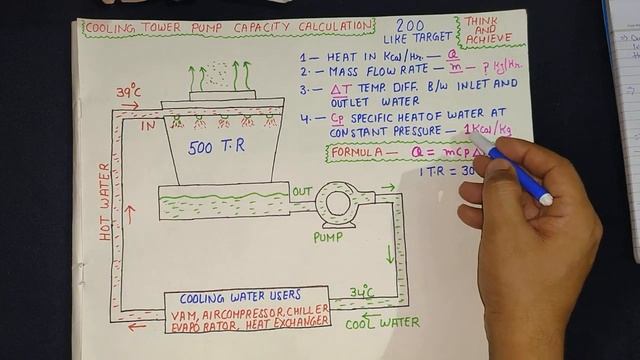 COOLING TOWER PUMP CAPACITY CALCULATION
200
LIKE TARGET
THINK
AND
ACHIEVE
1 — HEAT IN Kcal/Hr. — Q
2 — MASS FLOW RATE — m — ? Kg/Hr.
3 — ΔT TEMP. DIFF. B/W INLET AND
OUTLET WATER
4. — Cp SPECIFIC HEAT OF WATER AT
CONSTANT PRESSURE — 1 Kcal/Kg
FORMULA — Q = m Cp Δ
1 T.R = 30
39°C
IN
500 T.R
HOT WATER
OUT
PUMP
34°C
COOL WATER
COOLING WATER USERS
VAM, AIRCOMPRESSOR, CHILLER
EVAPORATOR, HEAT EXCHANGER